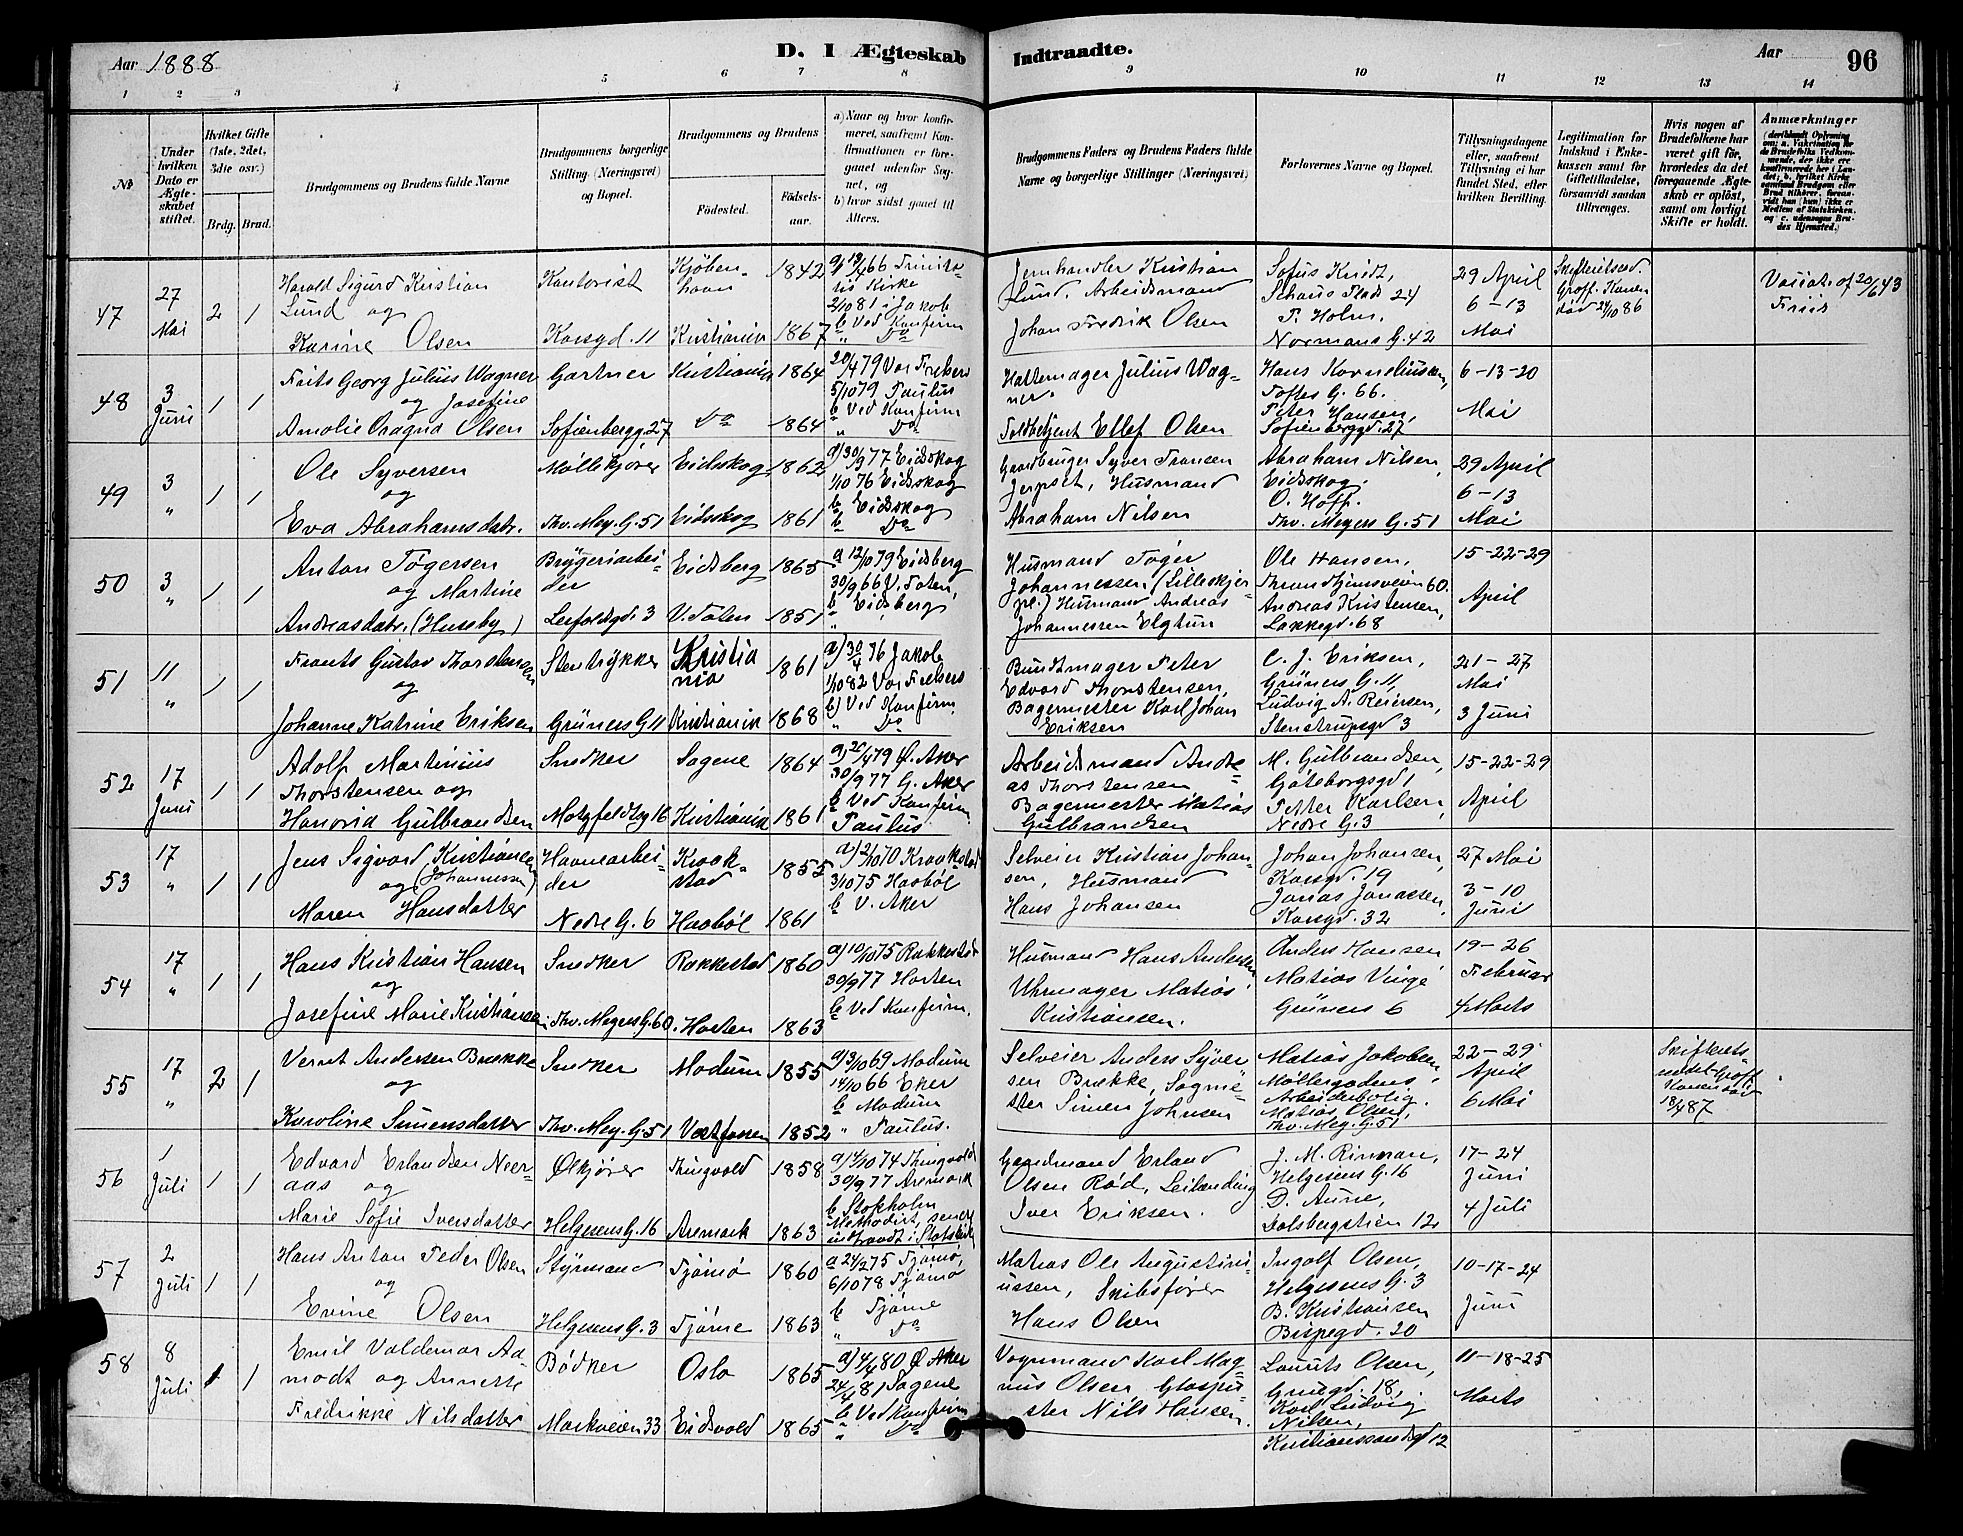 Aar 1888
D. I Ægteskab Indtraadte.
Aar
96
1 2 3 4 5 6 7 8 9 10 11 12 13 14
№
Under hvilken Dato er Ægteskabet stiftet.
Hvilket Gifte (1ste, 2det, 3die osv.)
Brdg. Brud.
Brudgommens og Brudens fulde Navne
Brudgommens borgerlige Stilling (Næringsvei) og Bopæl.
Brudgommens og Brudens
Födested.
Födsels-aar.
a) Naar og hvor konfirmeret, saafremt Konfirmationen er foregaaet udenfor Sognet, og
b) hvor sidst gaaet til Alters.
Brudgommens Faders og Brudens Faders fulde Navne og borgerlige Stillinger (Næringsvei)
Forlovernes Navne og Bopæl.
Tillysningsdagene eller, saafremt Tillysning ei har fundet Sted, efter hvilken Bevilling.
Legitimation for Indskud i Enkekassen samt for Giftetilladelse, forsaavidt saadan tiltrænges.
Hvis nogen af Brudefolkene har været gift för, hvorledes da det foregaaende Ægteskab er oplöst, samt om lovligt Skifte er holdt.
Anmærkninger
47 27 Mai 2 1
Harald Sigurd Kristian Lund og
Karine Olsen
Kontorist
Korsgd. 11
Kjöbenhavn 1842
Kristiania 1867
a) 19/4 66 Trinitatis Kirke
2/10 81 i Jakob
b Ved Konfirm
" Do
Jernhandler Kristian Lund. Arbeidsmand
Johan Fredrik Olsen
Sofus Kridt,
Schous Plads 24
P. Holm,
Normans G. 42
29 April
6-13
Mai
Skifteretsed. Groff. Konen död 24/10 86
Vasiat. af 20/6 43
Friis
48 3 Juni 1 1
Frits Georg Julius Wagner
og Josefine
Amalie Dragna Olsen
Gartner
Sofienbergg. 27
Kristiania 1864
Do 1864
20/4 79 Vor Frelsers
5/10 79 Paulus
b Ved Konfirm
" Do
Hattemager Julius Wagner.
Toldbetjent Ellef Olsen
Hans Kornelius­sen,
Toftes G. 66.
Peter Hansen,
Sofienberggd. 27
6-13-20
Mai
49 3 " 1 1
Ole Syversen
og
Eva Abrahamsdatr.
Møllekjører
Thv. Mey. G. 51
Eidskog 1862
Eidskog 1861
a) 30/9 77 Eidskog
1/10 76 Eidskog
b Eidskog
b Do
Gaardbruger Syver Fransen
Jerpset, Husmand
Abraham Nilsen
Abraham Nilsen,
Eidskog.
O. Hoff.
Thv. Meyers G. 51
29 April
6-13
Mai
50 3 " 1 1
Anton Tøgersen
og Martine
Andreasdatr. (Huseby)
Bryggeriarbeider
Leirfaldsgd. 3
Eidsberg 1865
V. Toten 1851
a 12/10 79 Eidsberg
30/9 66 V. Toten,
b Eidsberg
"
Husmand Tøger
Johannessen (Lilleskjer-
pl.) Husmand Andreas
Johannessen Elgtun
Ole Hansen,
Throndhjemsveien 60.
Andreas Kristensen,
Lakkegd. 68
15-22-29
April
51 11 " 1 1
Frants Gustav Thorstensen
og
Johanne Katrine Eriksen
Stentrykker
Grüners G 11
Kristiania 1861
Kristiania 1868
a) 30/4 76 Jakob
1/10 82 Vor Frelsers
b) Ved Konfirm
" Do
Bundtmager Peter
Edvard Thorstensen,
Bagermester Karl Johan
Eriksen
C. J. Eriksen,
Grüners G. 11,
Ludvig A. Reiersen,
Stenstrupsgd 3
21-27
Mai
3 Juni
52 17 Juni 1 1
Adolf Martinius
Thorstensen og
Hanvia Gulbrandsen
Snedker
Motzfeldtsg 16
Sagene 1864
Kristiania 1861
a) 20/4 79 Ø. Aker
30/9 77 G. Aker
b Ved Konfirm
" Paulus
Arbeidsmand Andre-
as Thorstensen
Bagermester Matias
Gulbrandsen
M. Gulbrandsen,
Gøteborgsgd 1
Petter Karlsen,
Nedre G. 3
15-22-29
April
53 17 " 1 1
Jens Sigvard Kristiansen
og (Johannessen)
Maren Hansdatter
Havnearbeider
Nedre G. 6
Kraakstad 1855
Haabøl 1861
a) 2/10 70 Kraakstad
3/10 75 Haabøl
b V. Aker
Selveier Kristian Johan-
sen, Husmand
Hans Johansen
Johan Johansen,
Korsgd. 19
Jonas Jonassen,
Korsgd. 32
27 Mai
3-10
Juni
54 17 " 1 1
Hans Kristian Hansen
og
Josefine Marie Kristiansen
Snedker
Thv. Meyers G. 60.
Rakkestad 1860
Horten 1863
a) 10/10 75 Rakkestad
30/9 77 Horten
b Ved Konfirm.
Husmand Hans Andersen
Uhrmager Matias
Kristiansen.
Anders Hansen
Matias Vinge
Grüners 6
19-26
Februar
4 Marts
55 17 " 2 1
Vernt Andersen Brække
og
Karoline Simensdatter
Snedker
Thv. Mey. G. 51
Modum 1855
Vestfossen 1852
a) 3/10 69 Modum
14/10 66 Eker
b Modum
" Paulus.
Selveier Anders Syver-
sen Brække, Sagme-
ster Simen Johnsen
Matias Jakobsen,
Møllergadens
Arbeiderbolig.
Matias Olsen,
Thv. Mey. G. 51
22-29
April
6 Mai
Skifterets-
Konen död
18/4 87
56 1 Juli 1 1
Edvard Erlandsen Neer-
aas og
Marie Sofie Iversdatter
Ølkjører
Helgesens G. 16
Thingvold 1858
Aremark 1863
a) 4/10 74 Thingvold
30/9 77 Aremark
b Stokholm
Methodist, senere
indtraadt i Statskirken
Gaardmand Erland
Olsen Rød, Leilænding
Iver Eriksen.
J. M. Rinman,
Helgesens G. 16
D. Aune,
Dalsbergstien 12
17-24
Juni
4 Juli
57 2 Juli 1 1
Hans Anton Peder Olsen
og
Evine Olsen
Styrmand
Helgesens G. 3
Tjømø 1860
Tjøme 1863
a 24/2 75 Tjømø,
6/10 78 Tjømø
b Tjøme
" Do
Matros Ole Augustini-
ussen, Skibsfører
Hans Olsen
Ingolf Olsen,
Helgesens G. 3
B. Kristiansen
Bispegd. 20
10-17-24
Juni
58 8 Juli 1 1
Emil Valdemar Aa-
modt og Annette
Fredrikke Nilsdatter
Bødker
Markveien 33
Oslo 1865
Eidsvold 1865
a) 4/4 80 Ø. Aker
24/4 81 Sagene
b Ved Konfirm
" Do
Vognmand Karl Mag-
nus Olsen, Glaspu-
ster Nils Hansen.
Laurits Olsen,
Gruegd. 18,
Karl Ludvig
Nilsen,
Kristianssandsgd 12
11-18-25
Marts